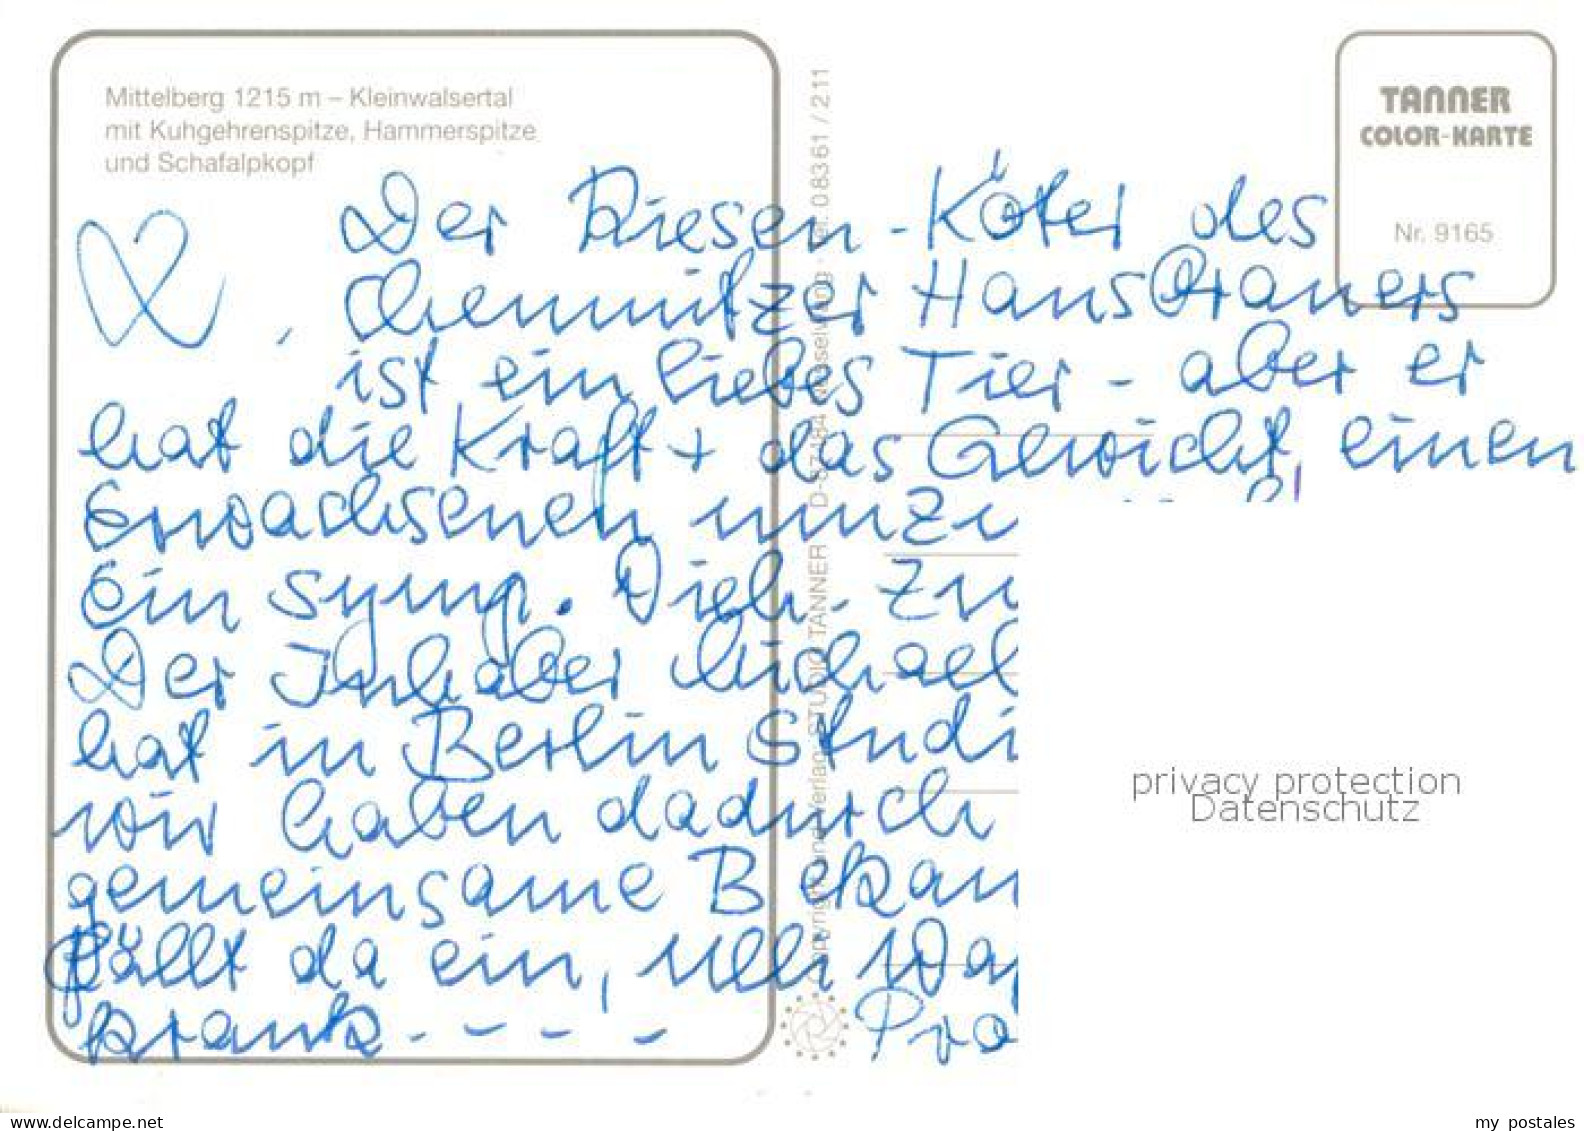 Mittelberg 1215 m – Kleinwalsertal
mit Kuhgehrenspitze, Hammerspitze
und Schafalpkopf
TANNER
COLOR-KARTE
Nr. 9165
Der Riesen-Köter des
Chemnitzer
ist ein liebes Tier - aber er
hat die Kraft + das Gewicht, einen
Erwachsenen umzu
Ein symp. Zu
Der Inhaber Michael
hat in Berlin Studi
wir haben dadurch
gemeinsame Bekan
fällt da ein, Ulli
krank - - - - Pro
Copyright und Verlag: STUDIO TANNER D-87484 Nesselwang - Tel. 0 83 61 / 2 11
privacy protection
Datenschutz
www.delcampe.net
my postales